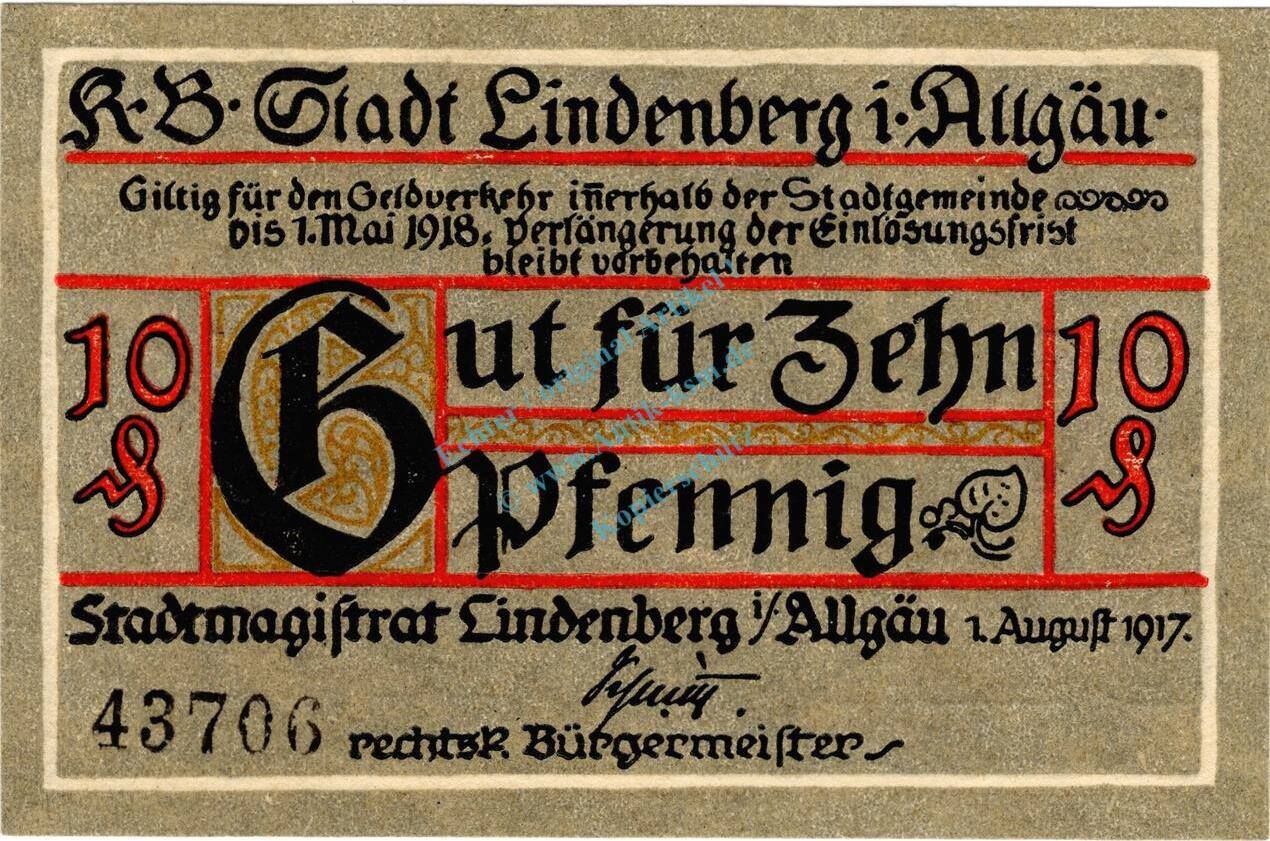 K·B· Stadt Lindenberg i·Allgäu·
Giltig für den Geldverkehr iñerhalb der Stadtgemeinde
bis 1. Mai 1918. Verlängerung der Einlösungsfrist
bleibt vorbehalten
10 Gut für Zehn 10
₰ Pfennig ₰
Stadtmagistrat Lindenberg i/Allgäu 1. August 1917.
43706 rechtsk. Bürgermeister
Echter / original Artikel
© www.Antik-ksm.de
Kopierschutz